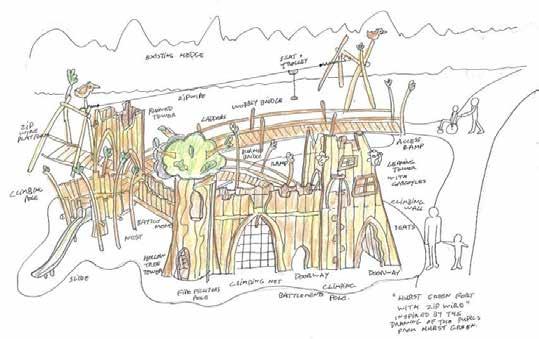 EXISTING HEDGE
SEAT +
TROLLEY
ZIPWIRE
ZIP
WIRE
PLATFORM
RUINED
TOWER
LADDERS
WOBBLY BRIDGE
BURMA
BRIDGE
RAMP
ACCESS
RAMP
LEANING
TOWER
WITH
GARGOYLES
CLIMBING
POLE
CLIMBING
WALL
SEATS
BATTLE
MENTS
NEST
HOLLOW
TREE
TOWER
SLIDE
FIRE FIGHTERS
POLE
CLIMBING NET
DOORWAY
BATTLEMENTS
CLIMBING
POLE
DOORWAY
"HURST GREEN FORT
WITH ZIP WIRE"
INSPIRED BY THE
DRAWING OF THE PUPILS
FROM HURST GREEN.